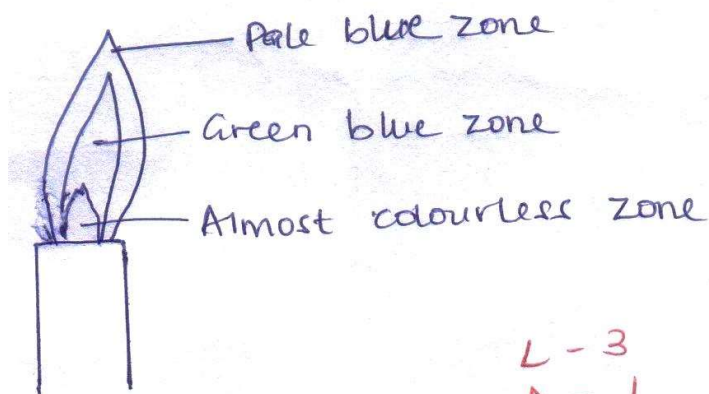 Pale blue zone
Green blue zone
Almost colourless zone
L - 3